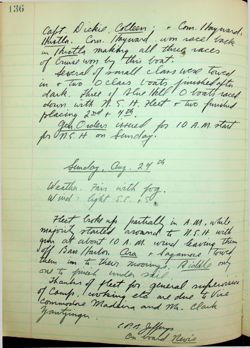 136
Capt. Dickie, Colleen, & Com. Hayward,
Thistle. Com. Hayward, won race back
in Thistle making all three races
of Cruise won by this boat.
Several of small class were towed
in & two O class boats finished after
dark. Three of Blue Hill O boats raced
down with N.E.H. Fleet & two finished
placing 2nd & 4th.
Orders issued for 10 A.M. start
for N.E.H on Sunday.
Sunday, Aug. 24th
Weather. Fair with fog.
Wind: light S.E. & S.
Fleet broke up partially in A.M., while
majority started around to N.E.H with
gun at about 10 A.M. wind leaving them
off Bar Harbor. & Sagamore towed
them in to their moorings, only
one to finish under sail.
Thanks of Fleet for general supervision
of Camp, cooking etc are due to Vice
Commodore Madeira and Mr. Clark